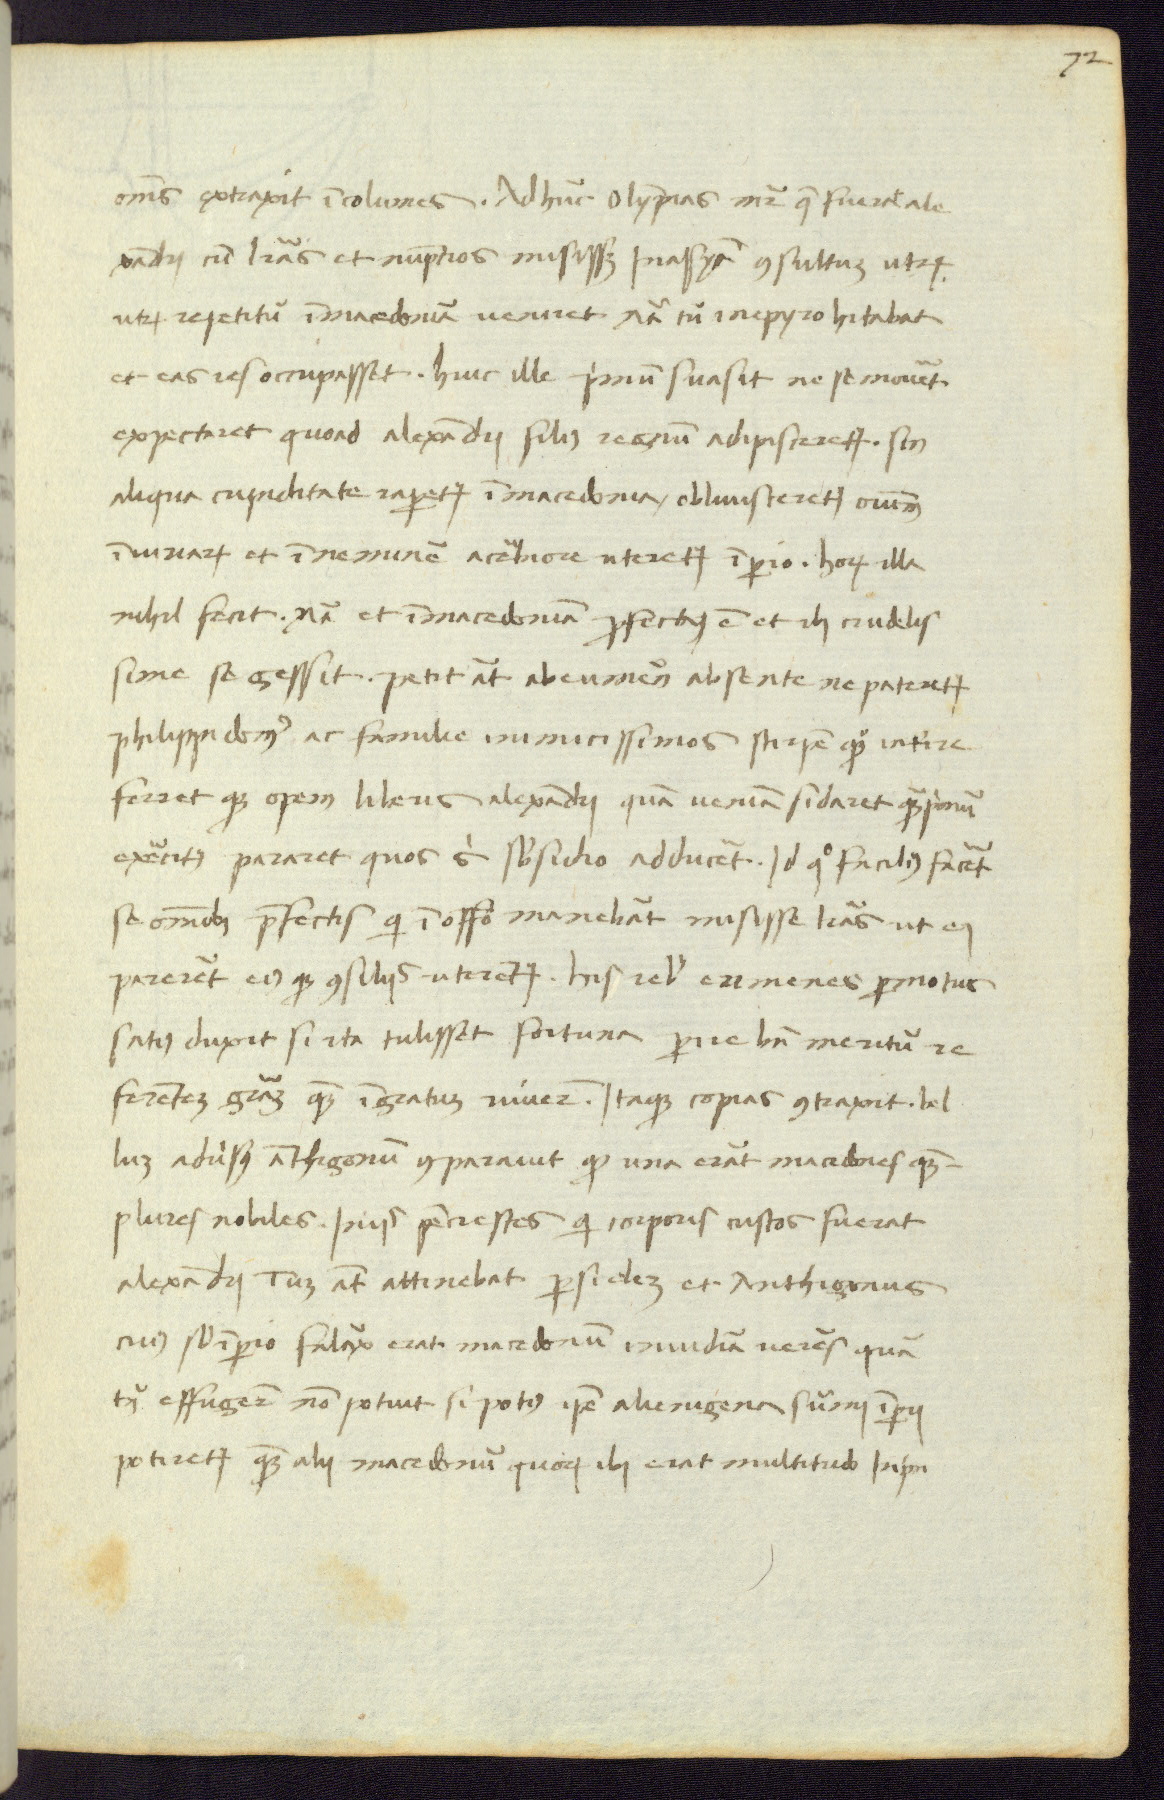 72
om̄s extraxit īcolumes. Ad hūc Olȳpias mr̄ q̄ fuerat ale
xādri cū lr̄as et nūptios misissꝫ in asyā ꝯsultuꝫ utrꝫ
utrꝫ repetitū ī macedoniā ueniret nā tū in epyro hitabat
et eas res occupasset. huic ille primū suasit ne se mouēt
expectaret quoad alexādri filiꝯ regnū adipisceretꝭ. sin
aliqua cupiditate raꝑetꝭ ī macedonia, obliuisceretꝭ oīum
īiuriaꝝ et ī neminē acerbiore uteretꝭ īꝑio. hoꝝ illa
nihil fecit. nā et ī macedoniā ꝓfectaꝫ ē et ibi crudelis
sime se gessit. petit āt ab eumen̄ absente ne pateretꝭ
philippi domꝰ ac familie inimicissimos stirpē qꝫ intire
ferret qꝫ opem liberis alexādri quā ueniā si daret qꝫ primū
exercitꝯ pararet quos s̄ sb̄sidio adducēt. Id qº faciliꝯ facēt
se omībꝫ p̄fectis qi ī offō manebāt misisse lr̄as ut ei
parerēt eiꝯ qꝫ ꝯsilijs uterētꝭ. his rebꝰ eumenes ꝑmotus
satiꝯ duxit si ita tulisset fortuna ꝑire bn̄ meritū re
ferēteꝫ grāꝫ qꝫ īgratuꝫ uiuer̄. Itaqꝫ copias ꝯtraxit. bel
luꝫ aduersꝯ āthigonū ꝯparauit qꝫ una erāt macedones qꝫ
plures nobiles. In ijs pēcrestes qi corporis custos fuerat
alexādri Tuꝫ āt attinebat ꝑsideꝫ et Anthigonus
cuiꝯ sb̄ īꝑio falāx erat macedonū inuidiā uerēs quā
tn̄ effuger̄ nō potuit si potiꝯ ip̄e alienigena sūmi īꝑii
potiretꝭ qꝫ alij macedonū quoꝝ ibi erat multitudo In pn